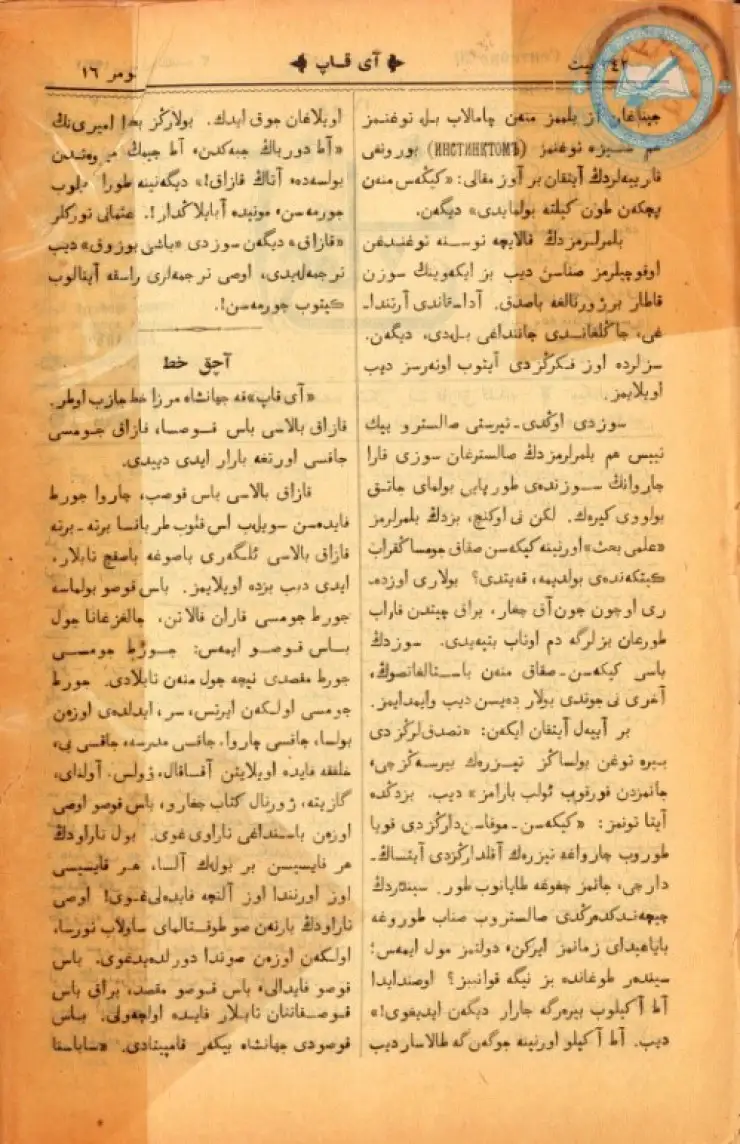 آی قاپ
نومر ١٦
چیناغان از بلیمز منەن چامالاب بل توغنمز
توغنمز (ИНСТИНКТОМЪ) بورونغی
آیتقان بر آوز مقالی: «کیکەس منەن
پچکەن طون کیلتە بولمایدی» دیگەن.
بلمرلرمزدڭ قالایچە توسنە توغندغن
اوقوچیلرمز صناسن دیب بز ایکەوینڭ سوزن
قاطار بر ژورنالغە باصدق. آداسقاندی آرتندا-
غی، جاڭلغاندی جانداغی بلدی، دیگەن.
سزلردە اوز فکرڭزدی آیتوب اونەرسز دیب
اویلایمز.
سوزدی اوڭدی-تیرستی صالسترو بیڭ
تییس هم بلمرلرمزدڭ صالسترغان سوزی قارا
جاروانڭ سوزندەی طورپایی بولمای جاتق
بولووی کیرەک. لکن نی اوکنچ، بزدڭ بلمرلرمز
«علمی بحث» اورنینە کیکەسن صقاق جومساڭقراب
کیتکەندەی بولدیمە، قەیتدی؟ بولاری اوزدە-
ری اوچون جون آق جغار، براق چیتدن قاراب
طورغان بزلرگە دم اوناب بتپەیدی. سوزدڭ
باسی کیکەسن-صقاق منەن باستالغاتسوڭ،
آخری نی جوندی بولار دەیسن دیب وایمدایمز.
بر آیپەل آیتقان ایکەن: «تصدق لرڭزدی
بیرە توغن بولساڭز تیزرەک بیرسەڭزچی،
جانمزدن قورقوب ئولب بارامز» دیب. بزدڭدە
آیتا تونمز: «کیکەسن-موقاسن دارڭزدی قویا
طوروب چارواغە تیزرەک آقلدارڭزدی آیتساڭ-
دارچی، جانمز چغوغە طایانوب طور. سیندردڭ
صالستروب صناب طوروغە
بایاغیدای زمانمز ایرکن، دولتمز مول ایمەس؛
سیندەر طوغاندە بز نیگە قوانبیز؟ اوصندایدا
آط آکیلوب بیرەرگە جارار دیگەن ایدیغوی!»
دیب. آط آکیلو اورنینە جوگەن گە طالاسار دیب
اویلاغان جوق ایدك. بولارڭز امیری‌نڭ
«آط دورباڭ جبەکدن، آط جیمڭ
بولسەدە، آتاڭ قازاق!» دیگەنینە طورا بلوب
جورمەسن، مونیدە آبایلاڭدار!. عثمانی تورکلر
«قازاق» دیگەن سوزدی «باشی بوزوق» دیب
ترجمەلەیدی، اوصی ترجمەلری راسقە آینالوب
کیتوب جورمەسن!.
آچق خط
«آی قاپ»قە جهانشاه مرزا خط جازب اوطر.
قازاق بالاسی باس قوصسا، قازاق جومسی
جاقسی اورتغە بارار ایدی دیبدی.
قازاق بالاسی باس قوصب، چاروا جورط
فایدەسن سویلب اس قئوب طربانسا برتە-برتە
قازاق بالاسی ئلگەری باصوغە باصقچ تابلار
ایدی دیب بزدە اویلایمز. باس قوصو بولماسە
جورط جومسی قاران قالاتن. جالغزغانا جول
باس قوصو ایمەس: جورط جومسی
جورط مقصدی نیچە جول منەن تابلادی. جورط
جومسی اولکەن ایرتس، سر، ایدلدەی اوزەن
بولسا، جاقسی چاروا. جاقسی مدرسە، جاقسی بی،
خلققە فایدە اویلایتن آقساقال، ژولس. آولنای،
گازیتە، ژورنال کتاب جغارو، باس قوصو اوصی
اوزەن باسنداغی تاراوی غوی. بول تاراودڭ
هر قایسیسن بر بولەڭ آلسا، هر قایسیسی
اوز اورنندا اوز آلنچە فایدەلی‌غوی! اوصی
تاراودڭ بارنەن صو طوقتالمای ساولاب تورسا،
اولکەن اوزەن صوندا دورلدەیدغوی. باس
قوصو فایدالی، باس قوصو مقصد، براق باس
قوصقاننان تابلار فایدە اولچەولی. باس
قوصودی جهانشاه بیکەر قامیتادی. «ساباستا